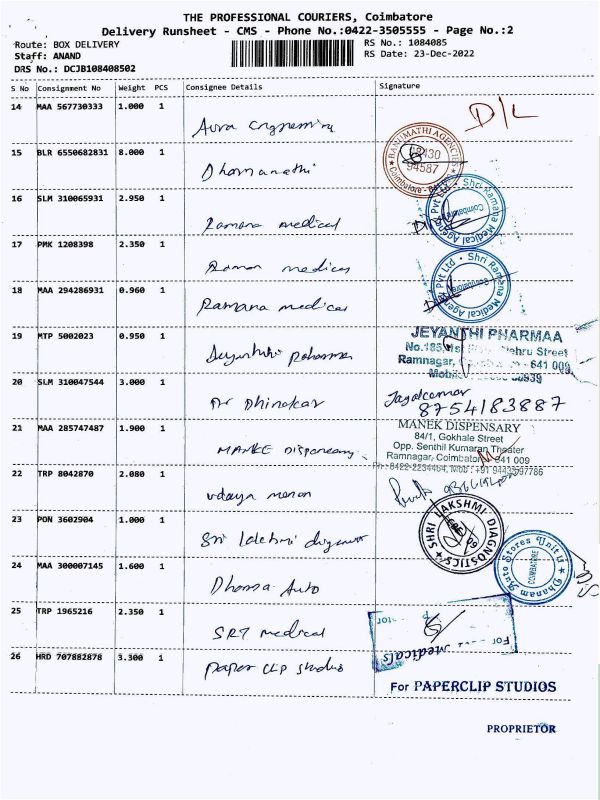 THE PROFESSIONAL COURIERS, Coimbatore
Delivery Runsheet - CMS - Phone No.:0422-3505555 - Page No.:2
Route: BOX DELIVERY
RS No.: 1084085
Staff: ANAND
RS Date: 23-Dec-2022
DRS No.: DCJB108408502
S No Consignment No Weight PCS Consignee Details Signature
14 MAA 567730333 1.000 1 D/L
15 BLR 6550682831 8.000 1
BANUMATHI AGENCIES
94587
Coimbatore
16 SLM 310065931 2.950 1 Ramana medical
Shri Ramana Medical Agency Pvt Ltd
Coimbatore
17 PMK 1208398 2.350 1 Raman medical
Shri Ramana Medical Agency Pvt Ltd
Coimbatore
18 MAA 294286931 0.960 1 Ramana medical
19 MTP 5002023 0.950 1
JEYANTHI PHARMAA
Nehru Street
Ramnagar, 641 009
20 SLM 310047544 3.000 1 Dr Dhinakar
Jagatkumar
8754183887
21 MAA 285747487 1.900 1 MANKE Dispensary
MANEK DISPENSARY
84/1, Gokhale Street
Opp. Senthil Kumaran Theater
Ramnagar, Coimbatore 641 009
Ph: 0422-2234464, Mob: +91
22 TRP 8042870 2.080 1 Udaya menon
23 PON 3602904 1.000 1 Sri lakshmi
SHRI LAKSHMI DIAGNOSTICS
24 MAA 300007145 1.600 1 Auto
Dhanam Auto Stores Unit
COIMBATORE
25 TRP 1965216 2.350 1 SRT medical
For
Medicals
26 HRD 707882878 3.300 1 paper CLP studios
For PAPERCLIP STUDIOS
PROPRIETOR